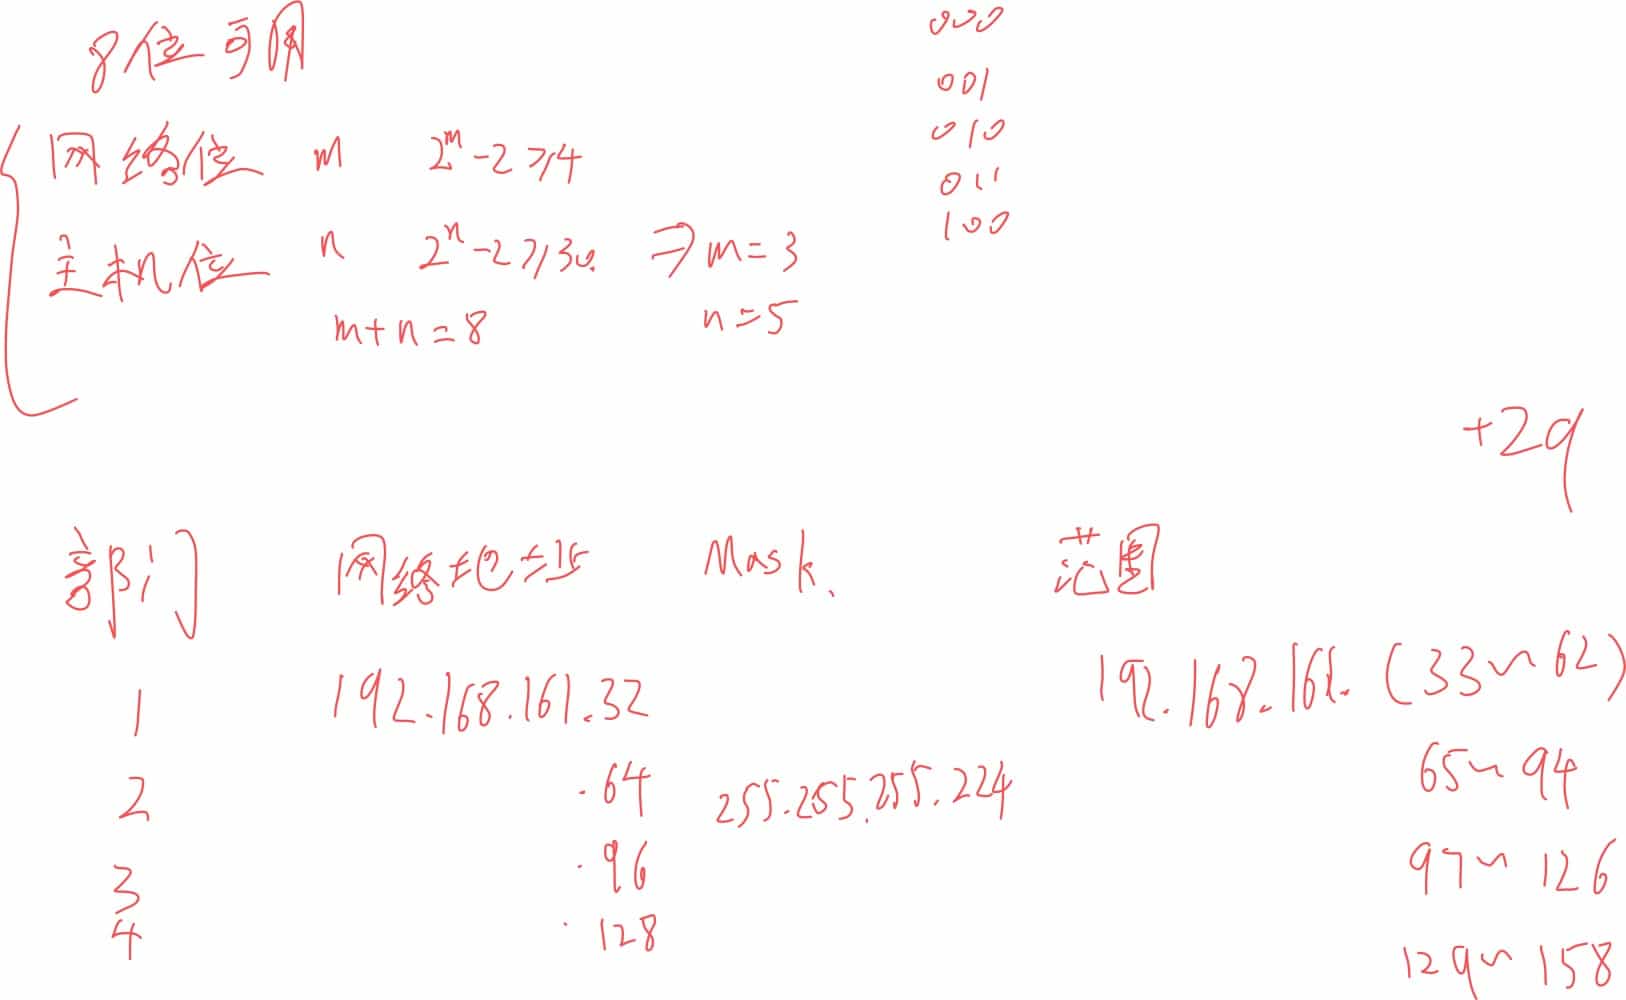 8位可用
网络位 m 2^m-2≥4
主机位 n 2^n-2≥30. ⇒ m=3
m+n=8 n=5
000
001
010
011
100
+29
部门 网络地址 Mask. 范围
1 192.168.161.32 192.168.161.(33~62)
2 .64 255.255.255.224 65~94
3 .96 97~126
4 .128 129~158